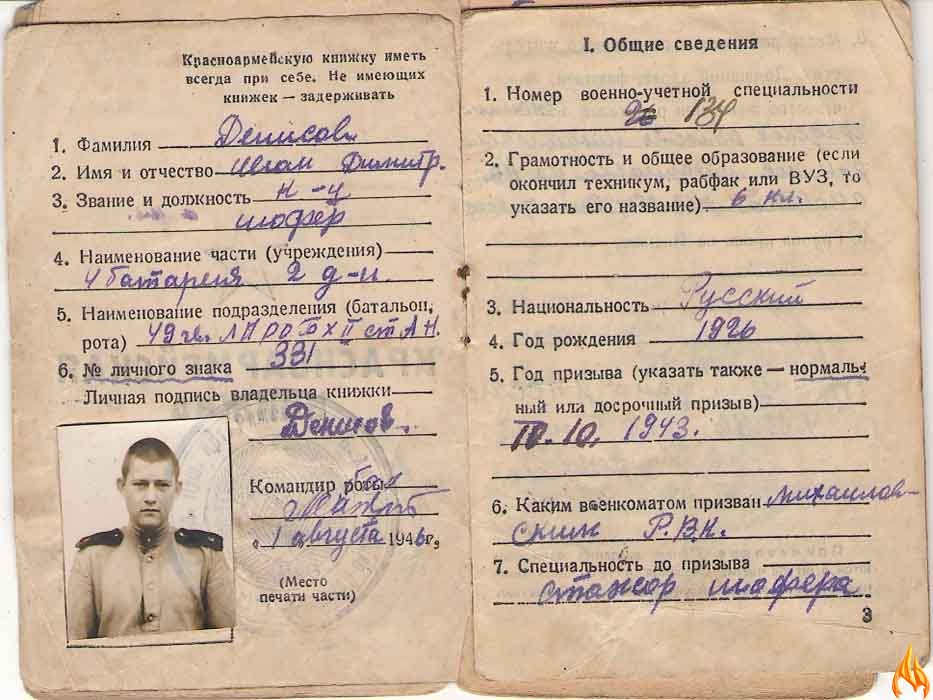 Красноармейскую книжку иметь
всегда при себе. Не имеющих
книжек — задерживать
1. Фамилия Денисов
2. Имя и отчество Иван Димитр.
3. Звание и должность к-ц
шофер
4. Наименование части (учреждения)
4 батарея 2 д-н.
5. Наименование подразделения (батальон,
рота) 49 гв.
6. № личного знака 331
Личная подпись владельца книжки
Денисов.
Командир роты
„1 августа 1946г.
(Место
печати части)
I. Общие сведения
1. Номер военно-учетной специальности
26 134
2. Грамотность и общее образование (если
окончил техникум, рабфак или ВУЗ, то
указать его название) 6 кл.
3. Национальность Русский
4. Год рождения 1926
5. Год призыва (указать также — нормаль-
ный или досрочный призыв)
10.10. 1943.
6. Каким военкоматом призван Михайлов-
ским Р.В.К.
7. Специальность до призыва
стажор шофера
3